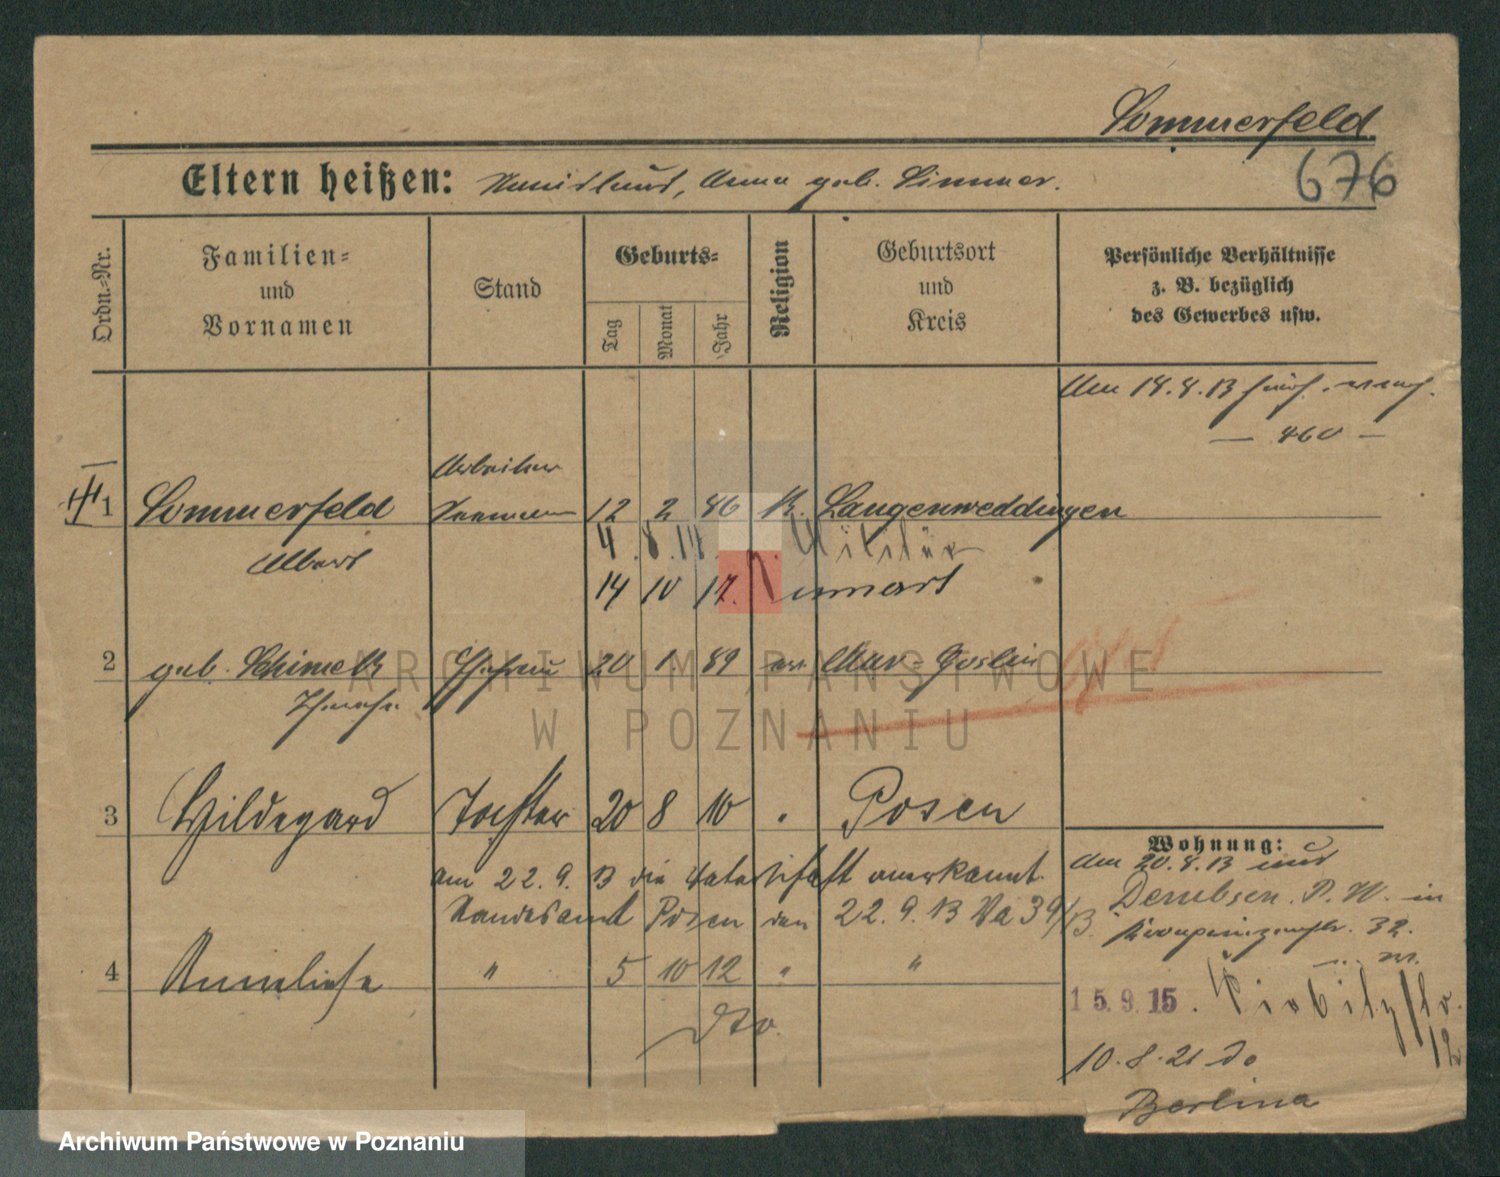 Sommerfeld
676
Eltern heißen: Anna geb. Simmer.
Ordn.-Nr.
Familien- und Vornamen
Stand
Geburts-
Tag
Monat
Jahr
Religion
Geburtsort und Kreis
Persönliche Verhältnisse
z. B. bezüglich
des Gewerbes usw.
Am 18.8.13
— 460 —
Arbeiter
1 Sommerfeld 12 2 86 K. Langenweddingen
Albert
4. 8. 14. Militär
14 10 17.
2 geb. Schimek Ehefrau 20 1. 89 ev. Mur-Goslin
3 Hildegard Tochter 20 8 10 " Posen
Wohnung:
am 22. 9. 13 die Vaterschaft anerkannt.
Standesamt Posen den 22. 9. 13 Va 39/13.
Am 20.8.13
Dembsen. P. W. in
32.
4 Anneliese " 5 10 12 " "
dto.
15.9.15.
12
10.8.21 do
Berlina
ARCHIWUM PAŃSTWOWE
W POZNANIU
Archiwum Państwowe w Poznaniu